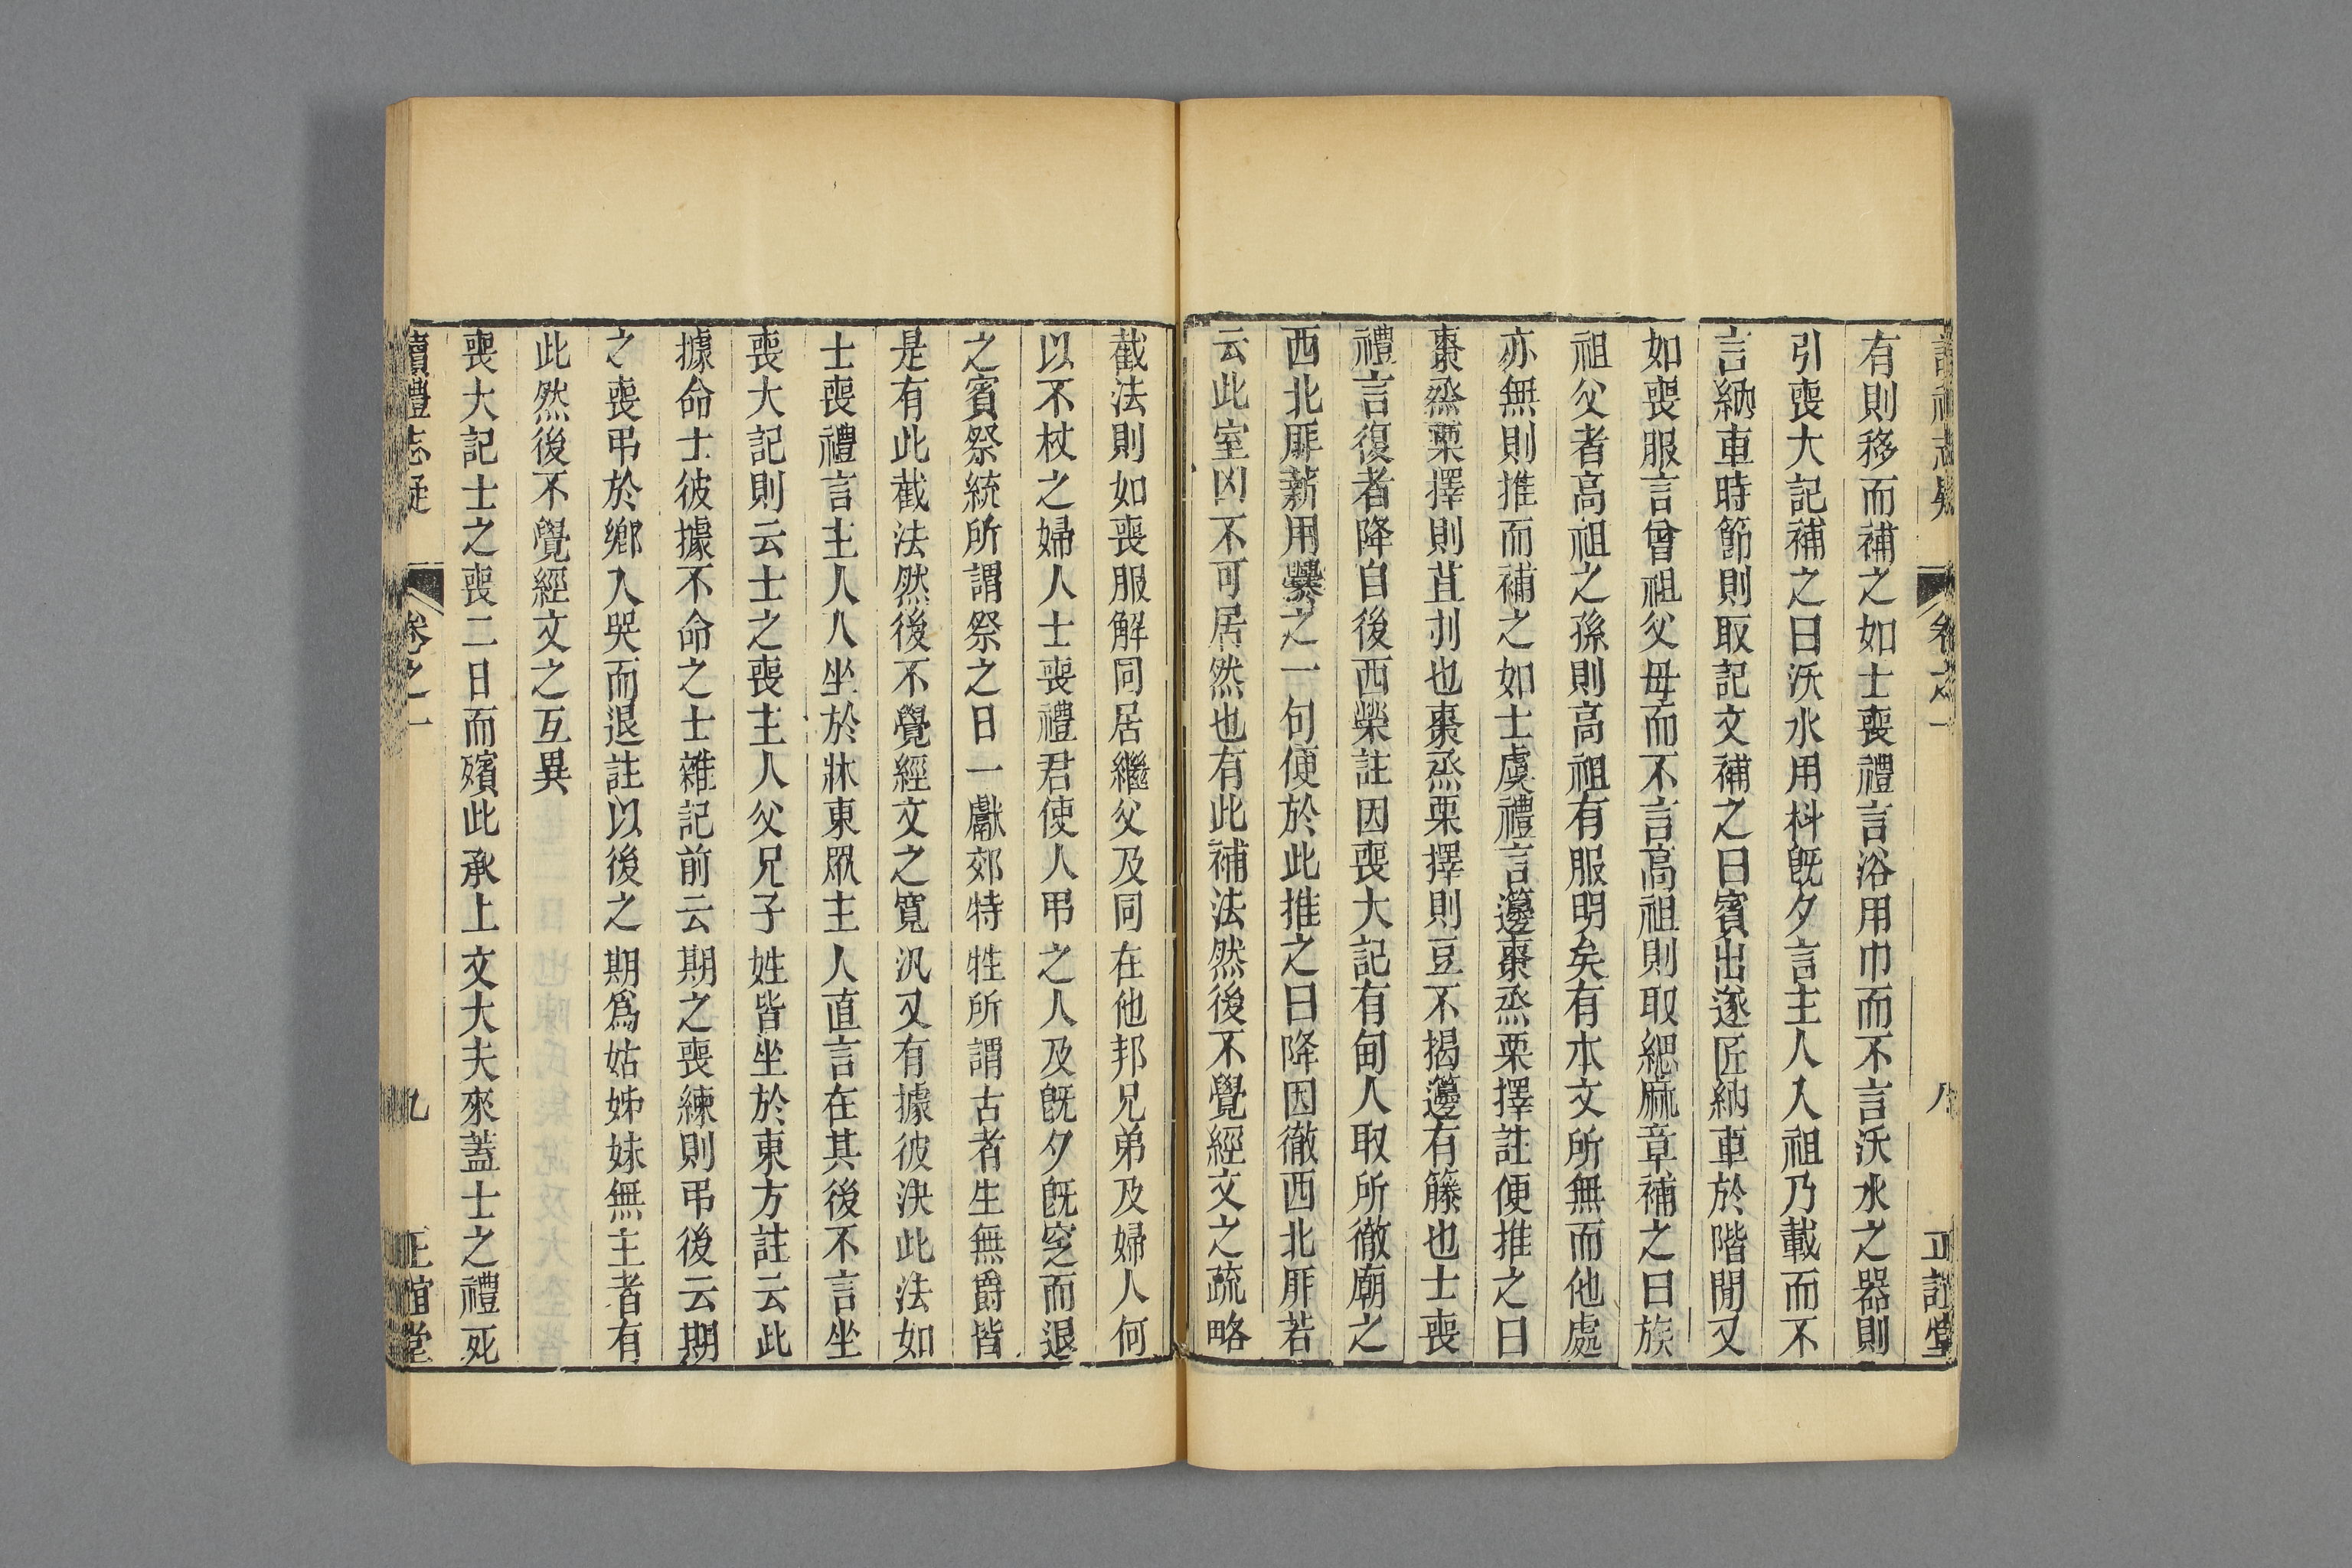 讀禮志疑 卷之一 八 正誼堂
有則移而補之如士喪禮言浴用巾而不言沃水之器則
引喪大記補之曰沃水用枓旣夕言主人入祖乃載而不
言納車時節則取記文補之曰賓出遂匠納車於階閒又
如喪服言曾祖父母而不言高祖則取緦麻章補之曰族
祖父者高祖之孫則高祖有服明矣有本文所無而他處
亦無則推而補之如士虞禮言籩棗烝栗擇註便推之曰
棗烝栗擇則菹刌也棗烝栗擇則豆不揭籩有籐也士喪
禮言復者降自後西榮註因喪大記有甸人取所徹廟之
西北厞薪用爨之一句便於此推之曰降因徹西北厞若
云此室凶不可居然也有此補法然後不覺經文之疏略
截法則如喪服解同居繼父及同在他邦兄弟及婦人何
以不杖之婦人士喪禮君使人弔之人及旣夕旣窆而退
之賓祭統所謂祭之日一獻郊特牲所謂古者生無爵皆
是有此截法然後不覺經文之寬汎又有據彼決此法如
士喪禮言主人入坐於牀東眾主人直言在其後不言坐
喪大記則云士之喪主人父兄子姓皆坐於東方註云此
據命士彼據不命之士雜記前云期之喪練則弔後云期
之喪弔於鄉人哭而退註以後之期爲姑姊妹無主者有
此然後不覺經文之互異
喪大記士之喪二日而殯此承上文大夫來蓋士之禮死
讀禮志疑 卷之一 九 正誼堂